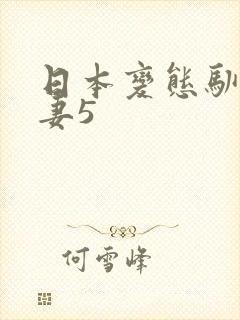 日本变态驯
妻5
何雪峰